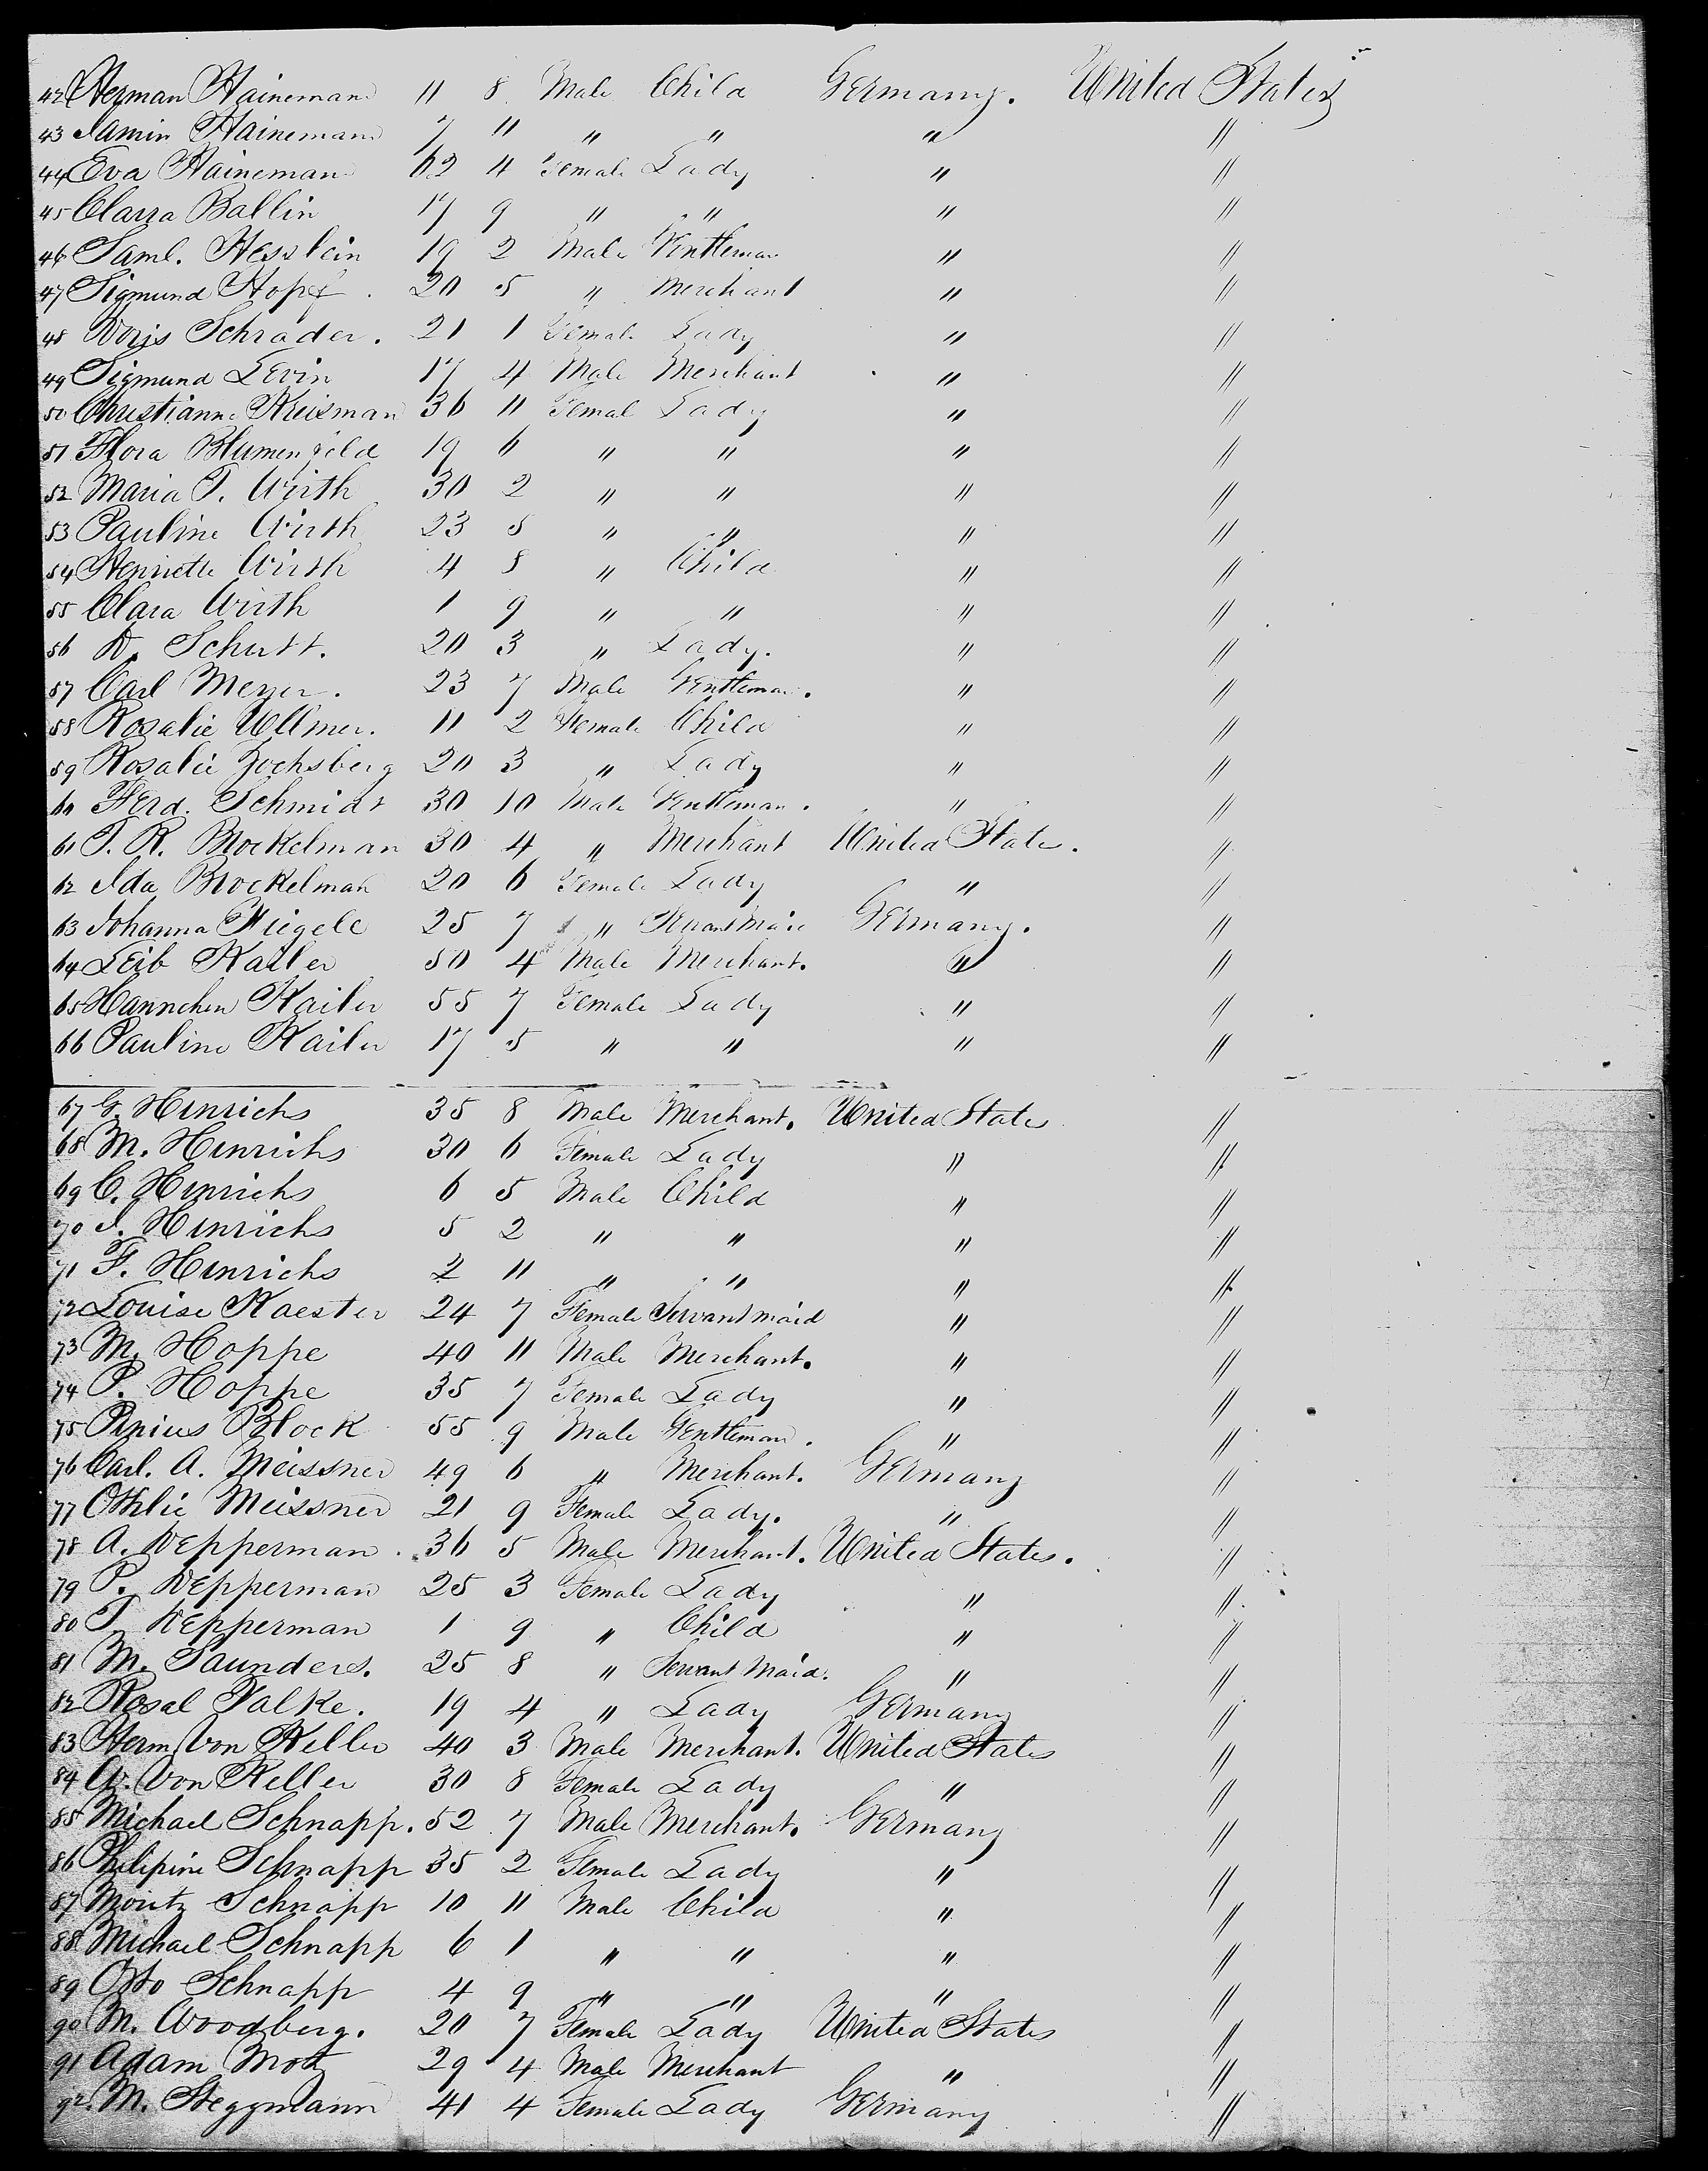 42 Herman Haineman 11 8 Male Child Germany. United States
43 Jamin Hainemann 7 11 " " " "
44 Eva Haineman 62 4 Female Lady " "
45 Clarra Ballin 17 9 " " " "
46 Saml. Hesslein 19 2 Male Gentleman " "
47 Sigmund Hopf. 20 5 " Merchant " "
48 Doris Schrader. 21 1 Female Lady " "
49 Sigmund Levin 17 4 Male Merchant " "
50 Christianne Kreisman 36 11 Femal Lady " "
51 Flora Blumenfeld 19 6 " " " "
52 Maria T. Wirth 30 2 " " " "
53 Pauline Wirth 23 5 " " " "
54 Henriette Wirth 4 8 " Child " "
55 Clara Wirth 1 9 " " " "
56 D. Schutt. 20 3 " Lady. " "
57 Carl Meyer. 23 7 Male Gentleman. " "
58 Rosalie Ullmer. 11 2 Female Child " "
59 Rosalie Zochsberg 20 3 " Lady " "
60 Ferd. Schmidt 30 10 Male Gentleman. " "
61 T. R. Brockelman 30 4 " Merchant United State. "
62 Ida Brockelman 20 6 Female Lady " "
63 Johanna Fliegele 25 7 " Servant Maid Germany. "
64 Leib Kailer 50 4 Male Merchant. " "
65 Hannchen Kailer 55 7 Female Lady " "
66 Pauline Kailer 17 5 " " " "
67 G. Hinrichs 35 8 Male Merchant. United States "
68 M. Hinrichs 30 6 Female Lady " "
69 C. Hinrichs 6 5 Male Child " "
70 J. Hinrichs 5 2 " " " "
71 F. Hinrichs 2 11 " " " "
72 Louise Kaester 24 7 Female Servant maid " "
73 M. Hoppe 40 11 Male Merchant. " "
74 P. Hoppe 35 7 Female Lady " "
75 Pinius Block 55 9 Male Gentleman. " "
76 Carl. A. Meissner 49 6 " Merchant. Germany "
77 Othlie Meissner 21 9 Female Lady. " "
78 A. Depperman. 36 5 Male Merchant. United States. "
79 P. Depperman 25 3 Female Lady " "
80 T. Depperman 1 9 " Child " "
81 M. Saunders. 25 8 " Servant Maid. " "
82 Rosal Falke. 19 4 " Lady Germany "
83 Herm Von Keller 40 3 Male Merchant. United States "
84 Von Keller 30 8 Female Lady " "
85 Michael Schnapp. 52 7 Male Merchant. Germany "
86 Philipine Schnapp 35 2 Female Lady " "
87 Moritz Schnapp 10 11 Male Child " "
88 Michael Schnapp 6 1 " " " "
89 Otto Schnapp 4 9 " " " "
90 M. Woodberg. 20 7 Female Lady United States "
91 Adam Motz 29 4 Male Merchant " "
92. M. Steggmann 41 4 Female Lady Germany "